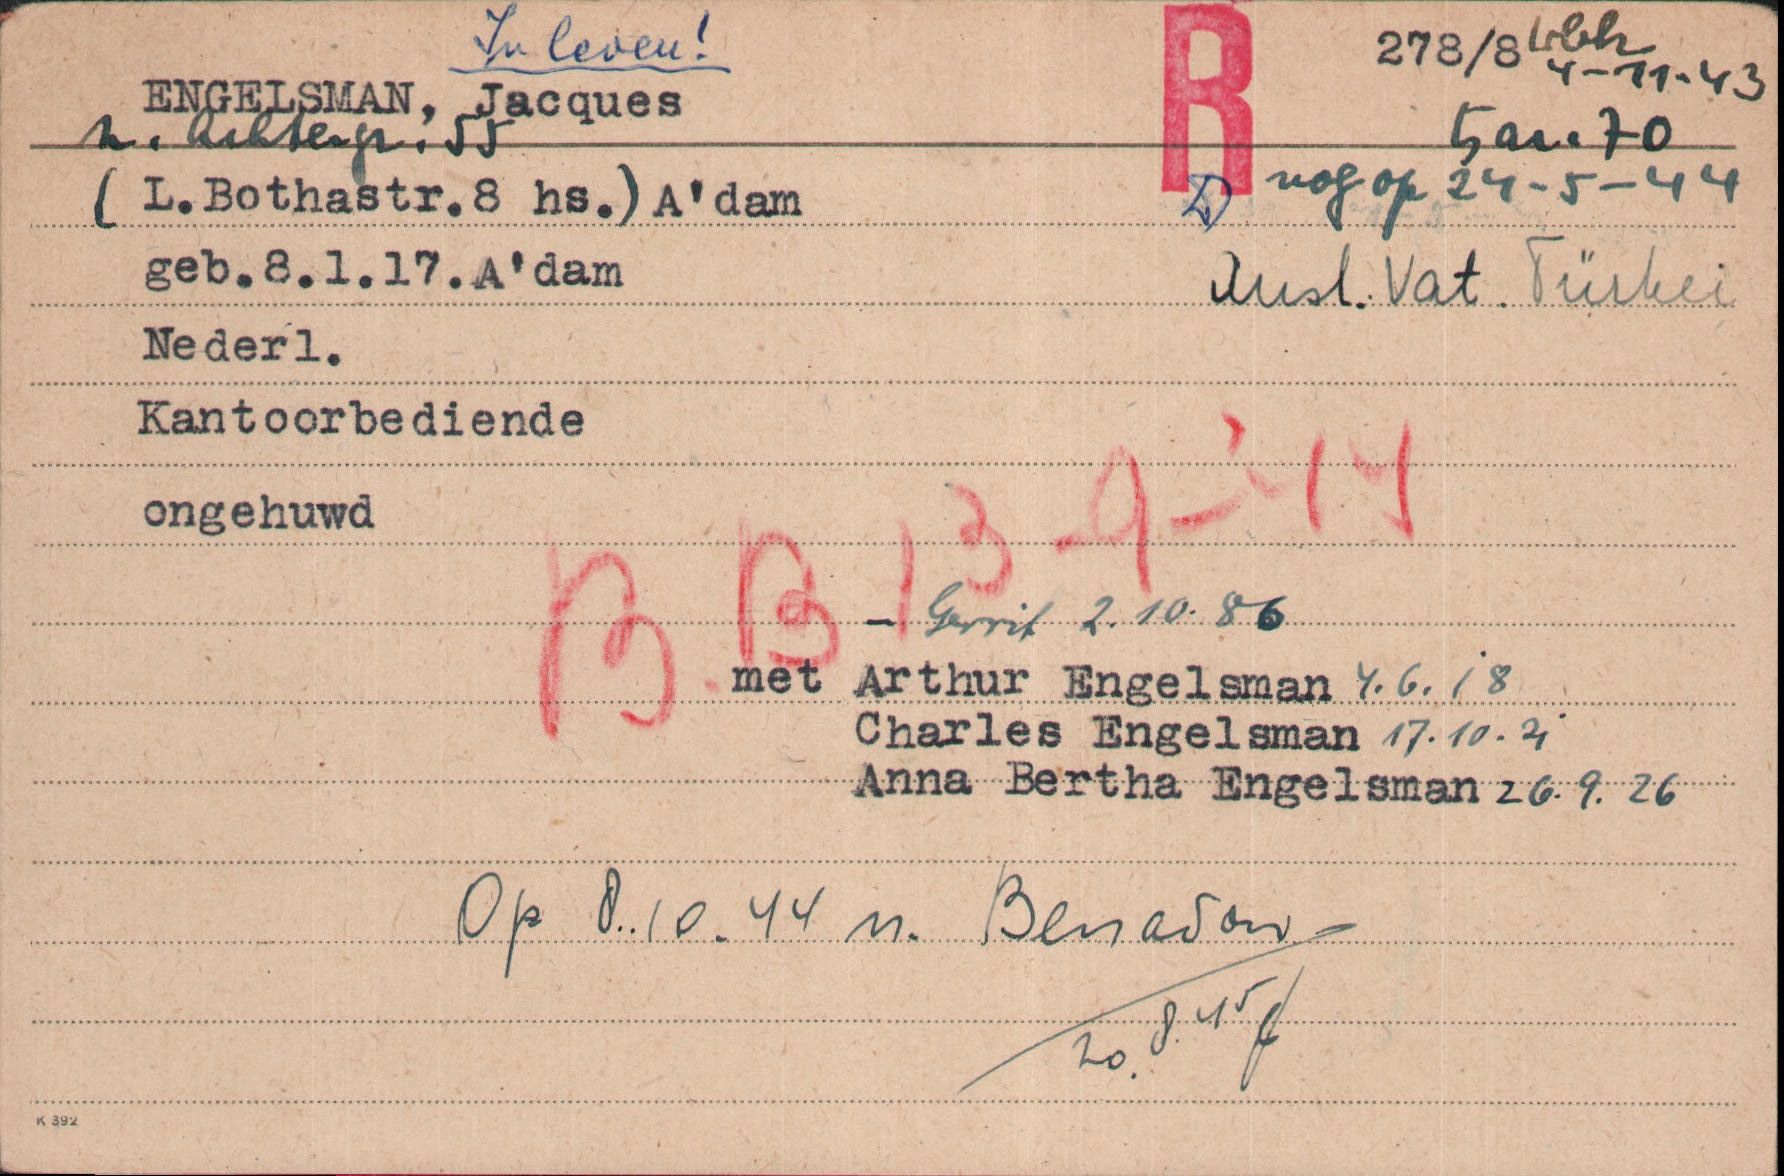 In leven!
R
278/8 Wbk
4-11-43
ENGELSMAN, Jacques
n. Achtergr. 55
bar. 70
( L.Bothastr.8 hs.) A'dam
nog op 24-5-44
geb.8.1.17.A'dam
Ausl. Vat. Türkei
Nederl.
Kantoorbediende
ongehuwd
BB 13-9-'44
- Gerrit 2.10.86
met Arthur Engelsman 4.6.18
Charles Engelsman 17.10.21
Anna Bertha Engelsman 26.9.26
Op 8.10.44 n.
20.8.45
K 392